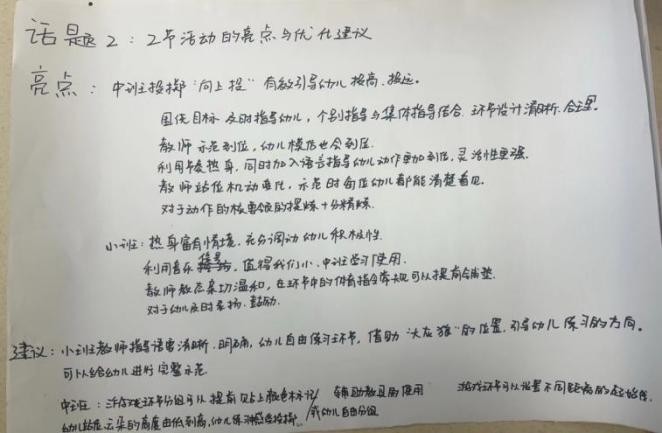 话题2：2节活动的亮点与优化建议
亮点：中班投掷"向上投"有效引导幼儿投高、投远。
围绕目标及时指导幼儿，个别指导与集体指导结合.环节设计清晰.合理。
教师示范到位，幼儿模仿也会到位.
利用节奏热身，同时加入语言指导幼儿动作更加到位，灵活性更强.
教师站位机动变化，示范时每位幼儿都能清楚看见.
对于动作的核心要领的提炼十分精炼.
小班：热身富有情境.充分调动幼儿积极性.
利用音乐信号，值得我们小、中班学习使用.
教师教态亲切温和，在环节中的体育指令常规可以提前铺垫.
对于幼儿及时表扬.鼓励.
建议：小班教师指导语要清晰.明确，幼儿自由练习环节，借助"大灰狼"的位置，引导幼儿练习的方向.
可以给幼儿进行完整示范.
中班：游戏环节分组可以提前贴上颜色标记/或幼儿自由分组 辅助教具的使用 游戏环节可以设置不同距离的起始线.
云朵的高度由低到高，幼儿练习